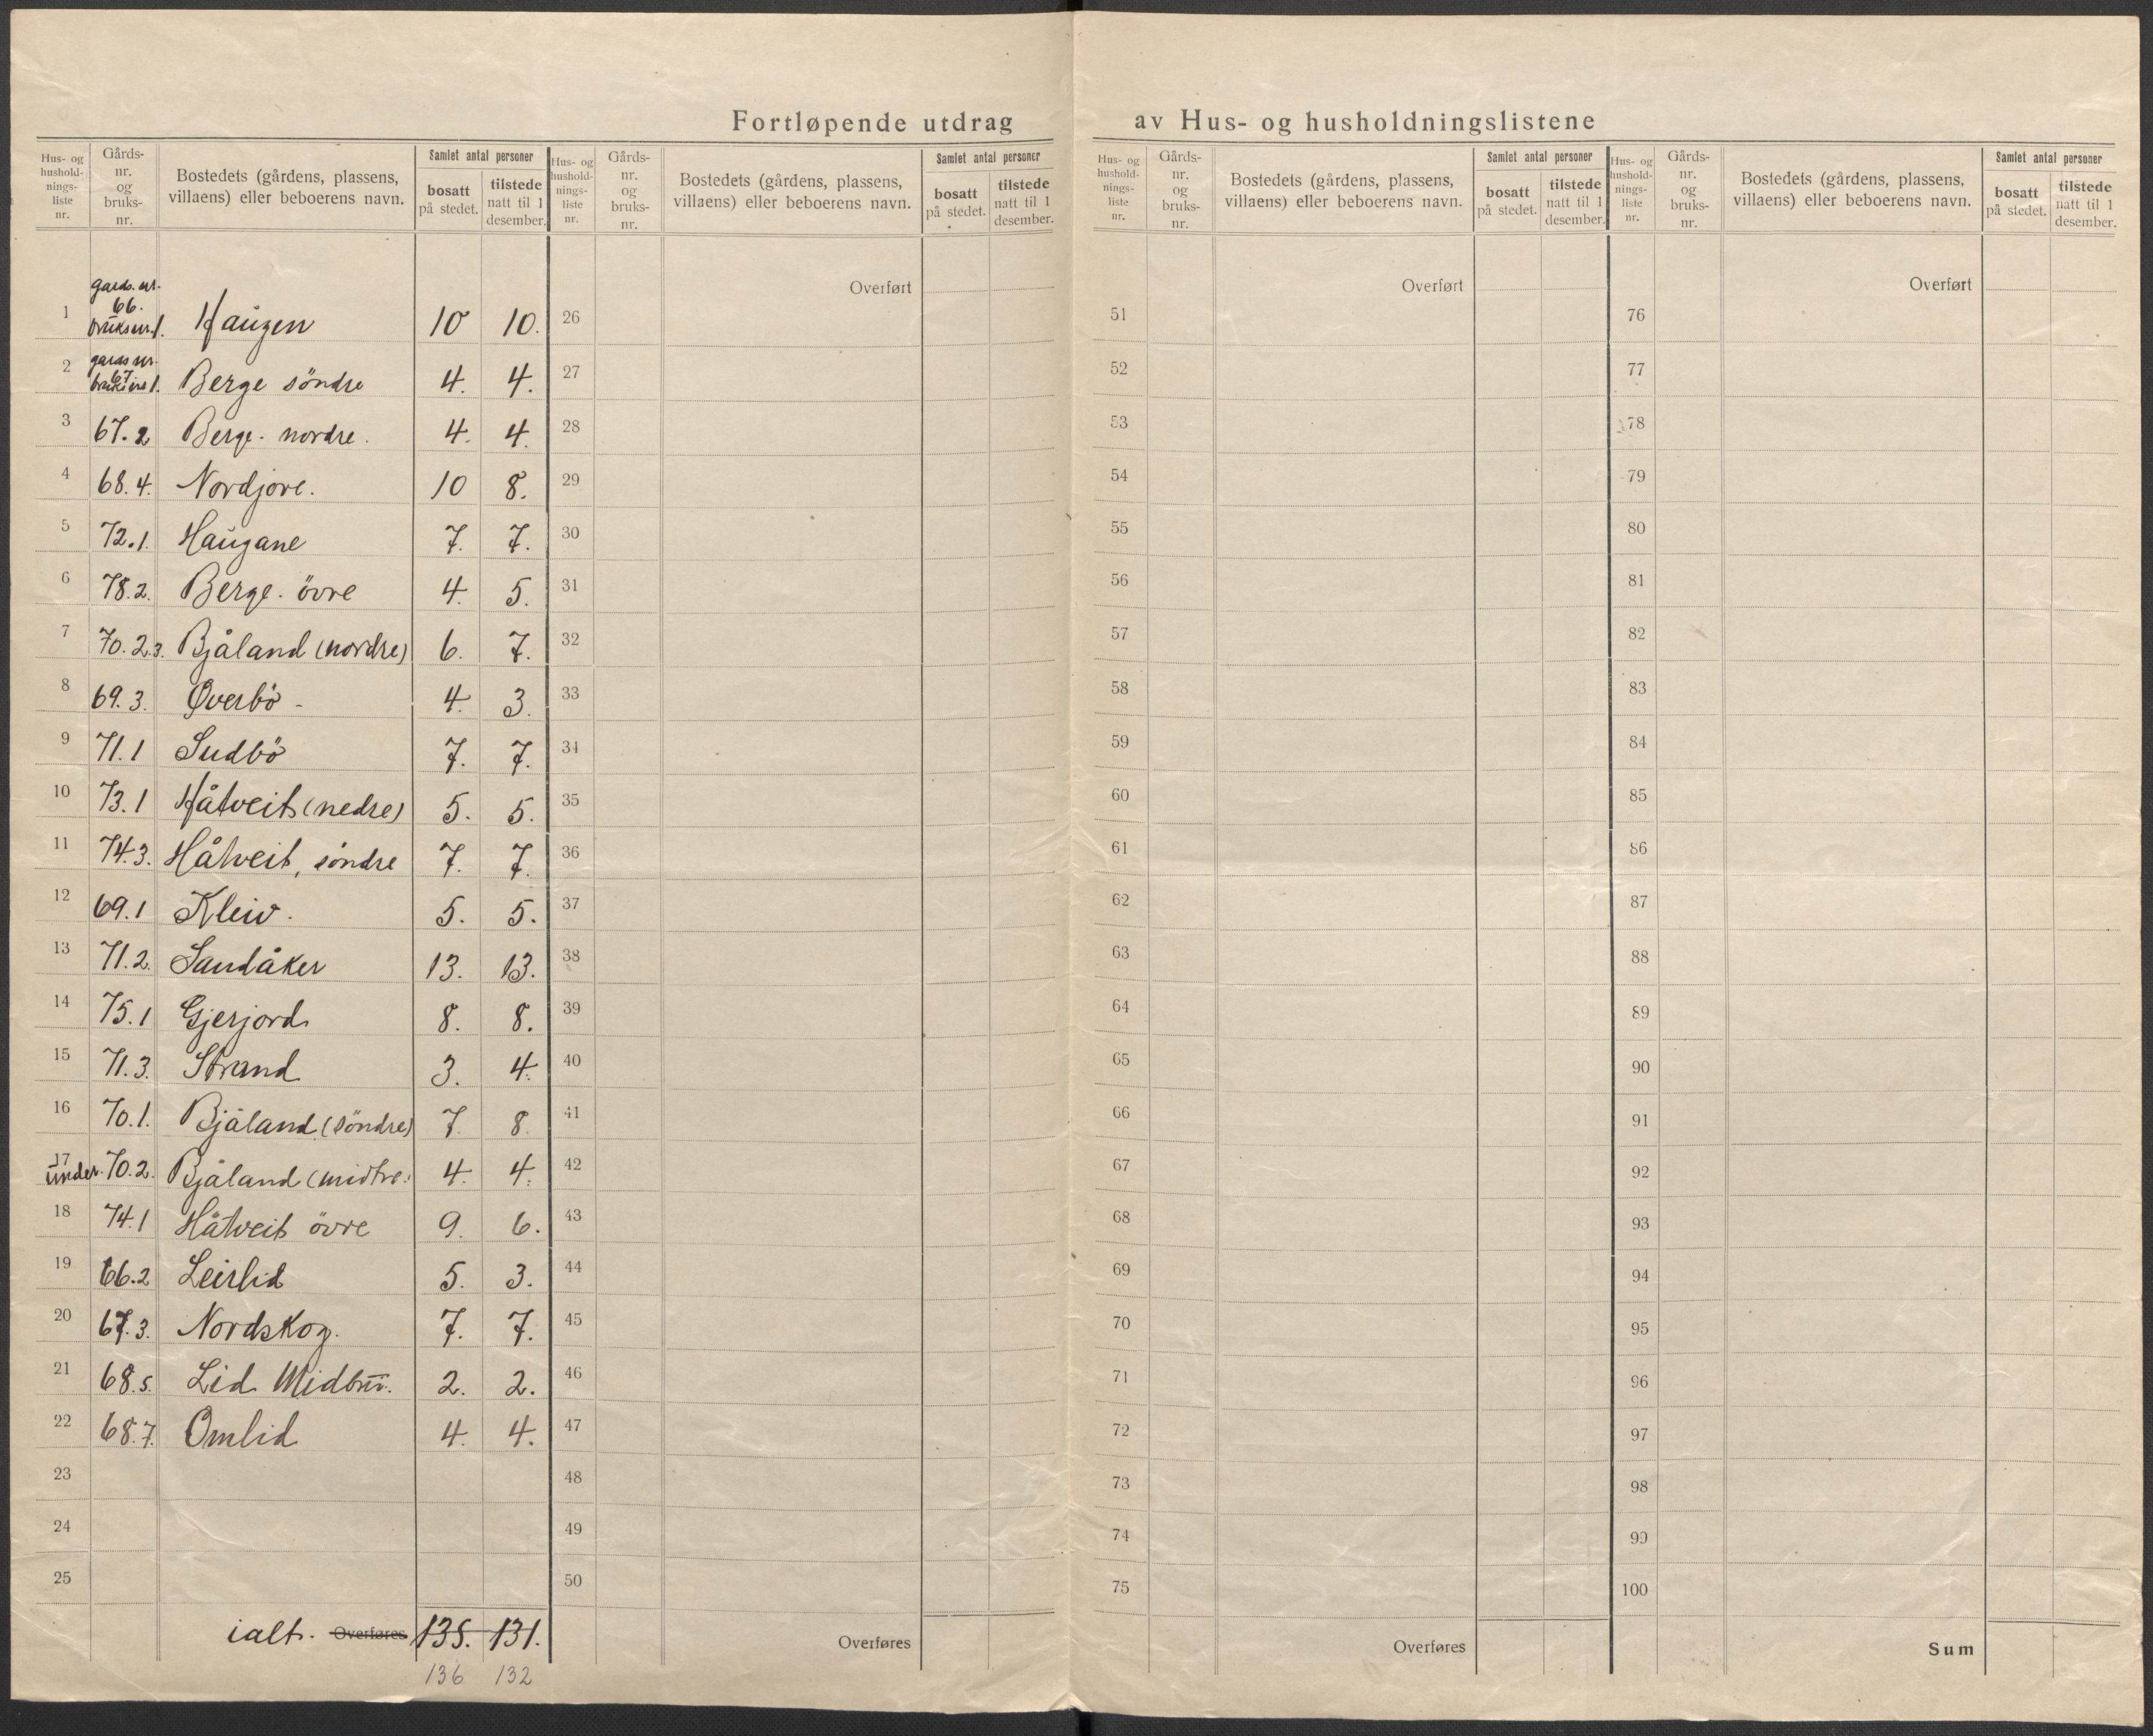 Fortløpende utdrag av Hus- og husholdningslistene
Hus- og hushold-nings-liste nr. Gårds-nr. og bruks-nr. Bostedets (gårdens, plassens, villaens) eller beboerens navn. Samlet antal personer bosatt på stedet. tilstede natt til 1 desember.
Hus- og hushold-nings-liste nr. Gårds-nr. og bruks-nr. Bostedets (gårdens, plassens, villaens) eller beboerens navn. Samlet antal personer bosatt på stedet. tilstede natt til 1 desember.
Hus- og hushold-nings-liste nr. Gårds-nr. og bruks-nr. Bostedets (gårdens, plassens, villaens) eller beboerens navn. Samlet antal personer bosatt på stedet. tilstede natt til 1 desember.
Hus- og hushold-nings-liste nr. Gårds-nr. og bruks-nr. Bostedets (gårdens, plassens, villaens) eller beboerens navn. Samlet antal personer bosatt på stedet. tilstede natt til 1 desember.
Overført Overført Overført
1 gards. nr. 66. bruksnr. 1. Haugen 10 10. 26 51 76
2 gards nr. 67 bruksnr 1. Berge söndre 4. 4. 27 52 77
3 67.2 Berge. nordre. 4. 4. 28 53 78
4 68.4. Nordjore. 10 8. 29 54 79
5 72.1. Haugane 7. 7. 30 55 80
6 78.2. Berge. övre 4. 5. 31 56 81
7 70.2.3. Bjåland (nordre) 6. 7. 32 57 82
8 69.3. Överbö - 4. 3. 33 58 83
9 71.1 Sudbö 7. 7. 34 59 84
10 73.1 Håtveit (nedre) 5. 5. 35 60 85
11 74.3. Håtveit, söndre 7. 7. 36 61 86
12 69.1 Kleiv. 5. 5. 37 62 87
13 71.2. Sandåker 13. 13. 38 63 88
14 75.1 Gjerjord 8. 8. 39 64 89
15 71.3. Strand 3. 4. 40 65 90
16 70.1. Bjåland (söndre) 7. 8. 41 66 91
17 under 70.2. Bjåland (midtre. 4. 4. 42 67 92
18 74.1 Håtveit övre 9. 6. 43 68 93
19 66.2 Leirlid 5. 3. 44 69 94
20 67.3. Nordskog. 7. 7. 45 70 95
21 68.5. Lid 2. 2. 46 71 96
22 68.7. Omlid 4. 4. 47 72 97
23 48 73 98
24 49 74 99
25 50 75 100
ialt. Overføres 135. 131. Overføres Overføres Sum
136 132